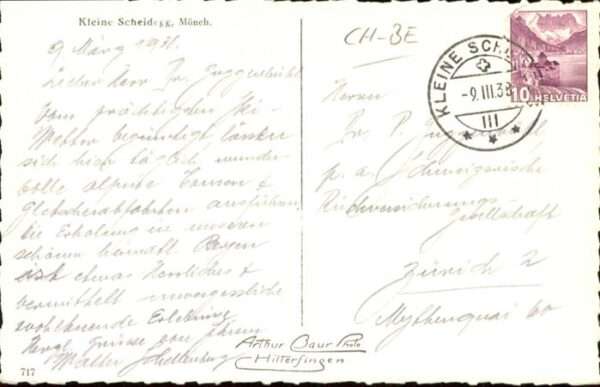 Kleine Scheidegg, Mönch.
CH-BE
9 März 1938.
Lieber Herr Dr. Guggenbühl
Vom prächtigen Ski
Wetter begünstigt lassen
sich hier täglich wunder
volle alpine Touren &
Gletscherabfahrten ausführen
die Erholung in unseren
schönen Bergen
ist etwas Herrliches &
vermittelt unvergessliche
wohltuende Erlebnisse
Herzl. Grüsse von Ihrem
Walter
717
Arthur Baur Photo
Hilterfingen
KLEINE SCH
-9.III.38
III
10 HELVETIA
Herrn
Dr. P. Guggenbühl
p. a. Schweizerische
Rückversicherungs
Gesellschaft
Zürich 2
Mythenquai 60